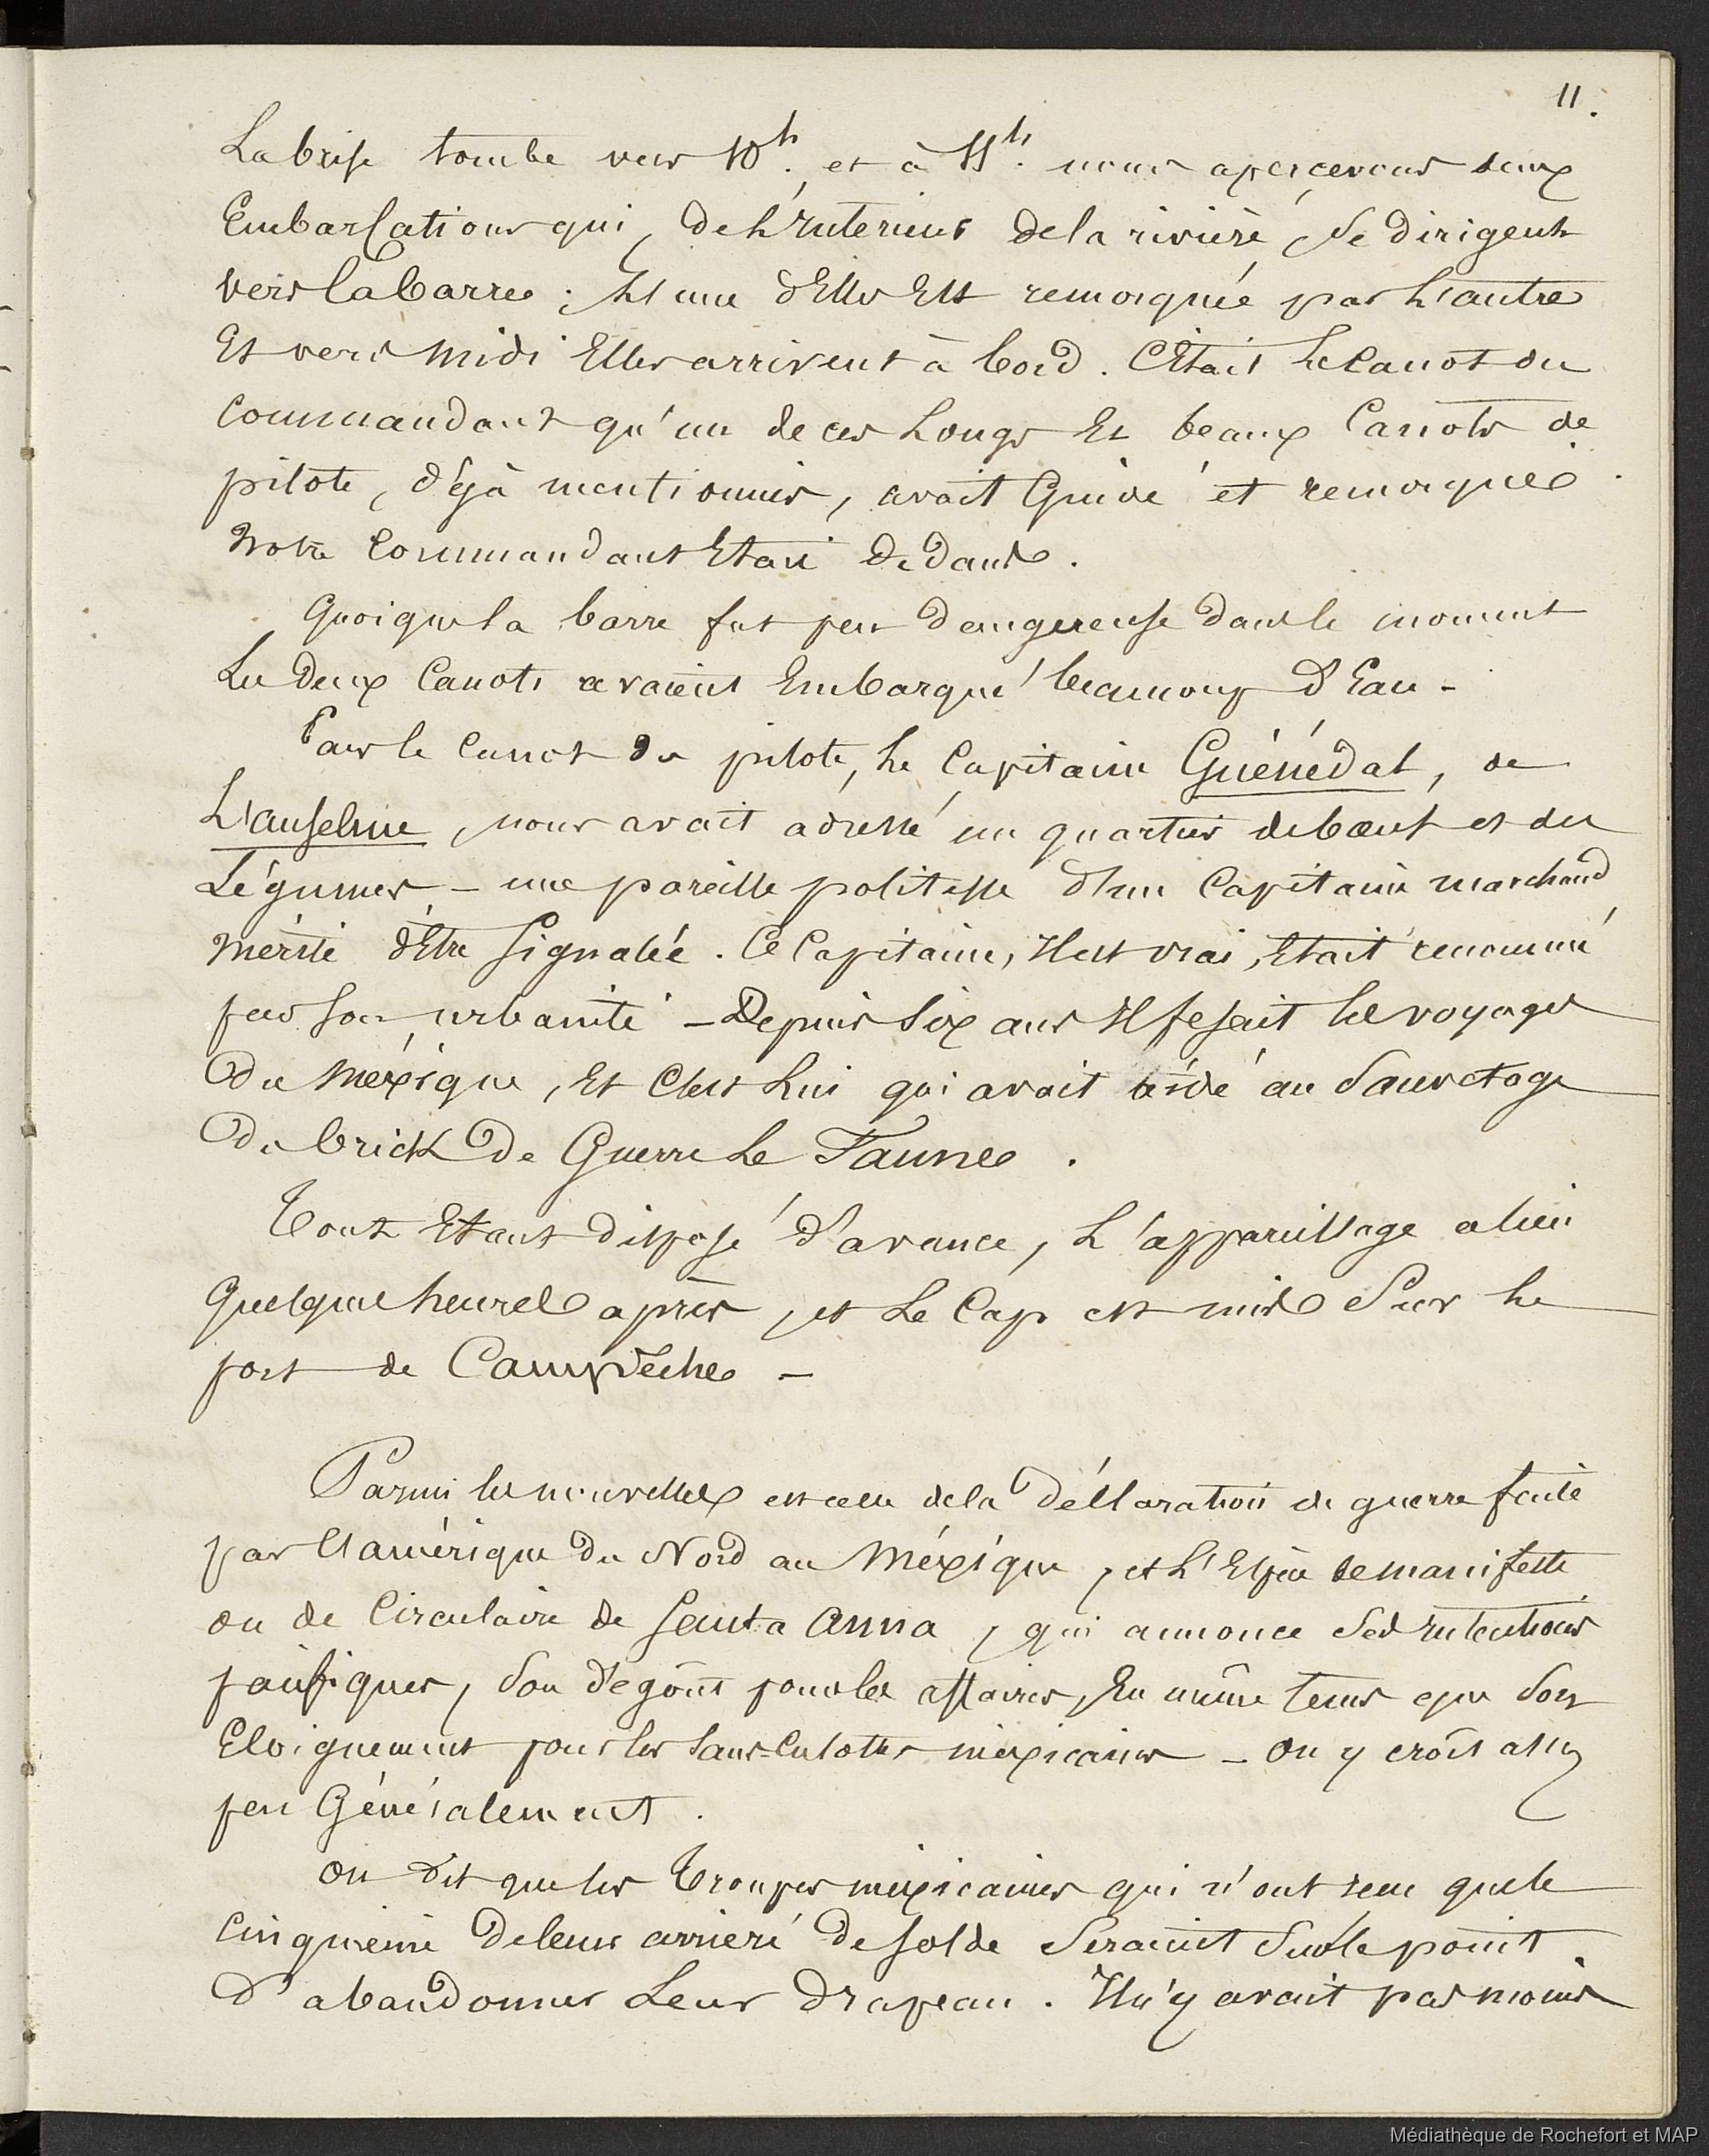 11.
La brise tombe vers 10h. et à 11h. nous apercevons deux
Embarcations qui, de L'Intérieur de la rivière, se dirigent
vers la barre ; L'une d'Elles Est remorquée par L'autre
Et vers midi Elles arrivent à bord. C'Etait Le Canot du
Commandant qu'un de ces Longs Et beaux Canots de
pilote, déjà mentionnés, avait Guidé et remorqué
Notre Commandant Etait Dedans.
Quoique la barre fut peu dangereuse dans le moment
Les Deux Canots avaient Embarqué beaucoup d'Eau -
Par le Canot du pilote, Le Capitaine Guénédal, de
L'anselme, nous avait adressé un quartier de boeuf et des
Légumes - une pareille politesse d'un Capitaine marchand
mérite d'Etre signalée. Ce Capitaine, Il est vrai, Etait renommé
par son urbanité - Depuis Six ans Il fesait les voyages
du Méxique, Et C'est Lui qui avait aidé au Sauvetage
du brick De Guerre Le Faune.
Tout Etant disposé d'avance, L'appareillage a lieu
quelques heures après, et Le Cap est mis Sur Le
port de Campêche -
Parmi les nouvelles est celle de la déclaration de guerre faite
par L'amérique du Nord au Méxique, et L'Espèce de manifeste
ou de Circulaire de Santa Anna, qui annonce Ses Intentions
pacifiques, Son dégoût pour les affaires, En même tems que Son
Eloignement pour les Sans-Culottes méxicains - On y croit assez
peu Généralement.
On dit que les Troupes méxicaines qui n'ont reçu que le
Cinquième de leur arriéré de solde Seraient Sur le point
d'abandonner Leur Drapeau. Il n'y avait pas moins
Médiathèque de Rochefort et MAP